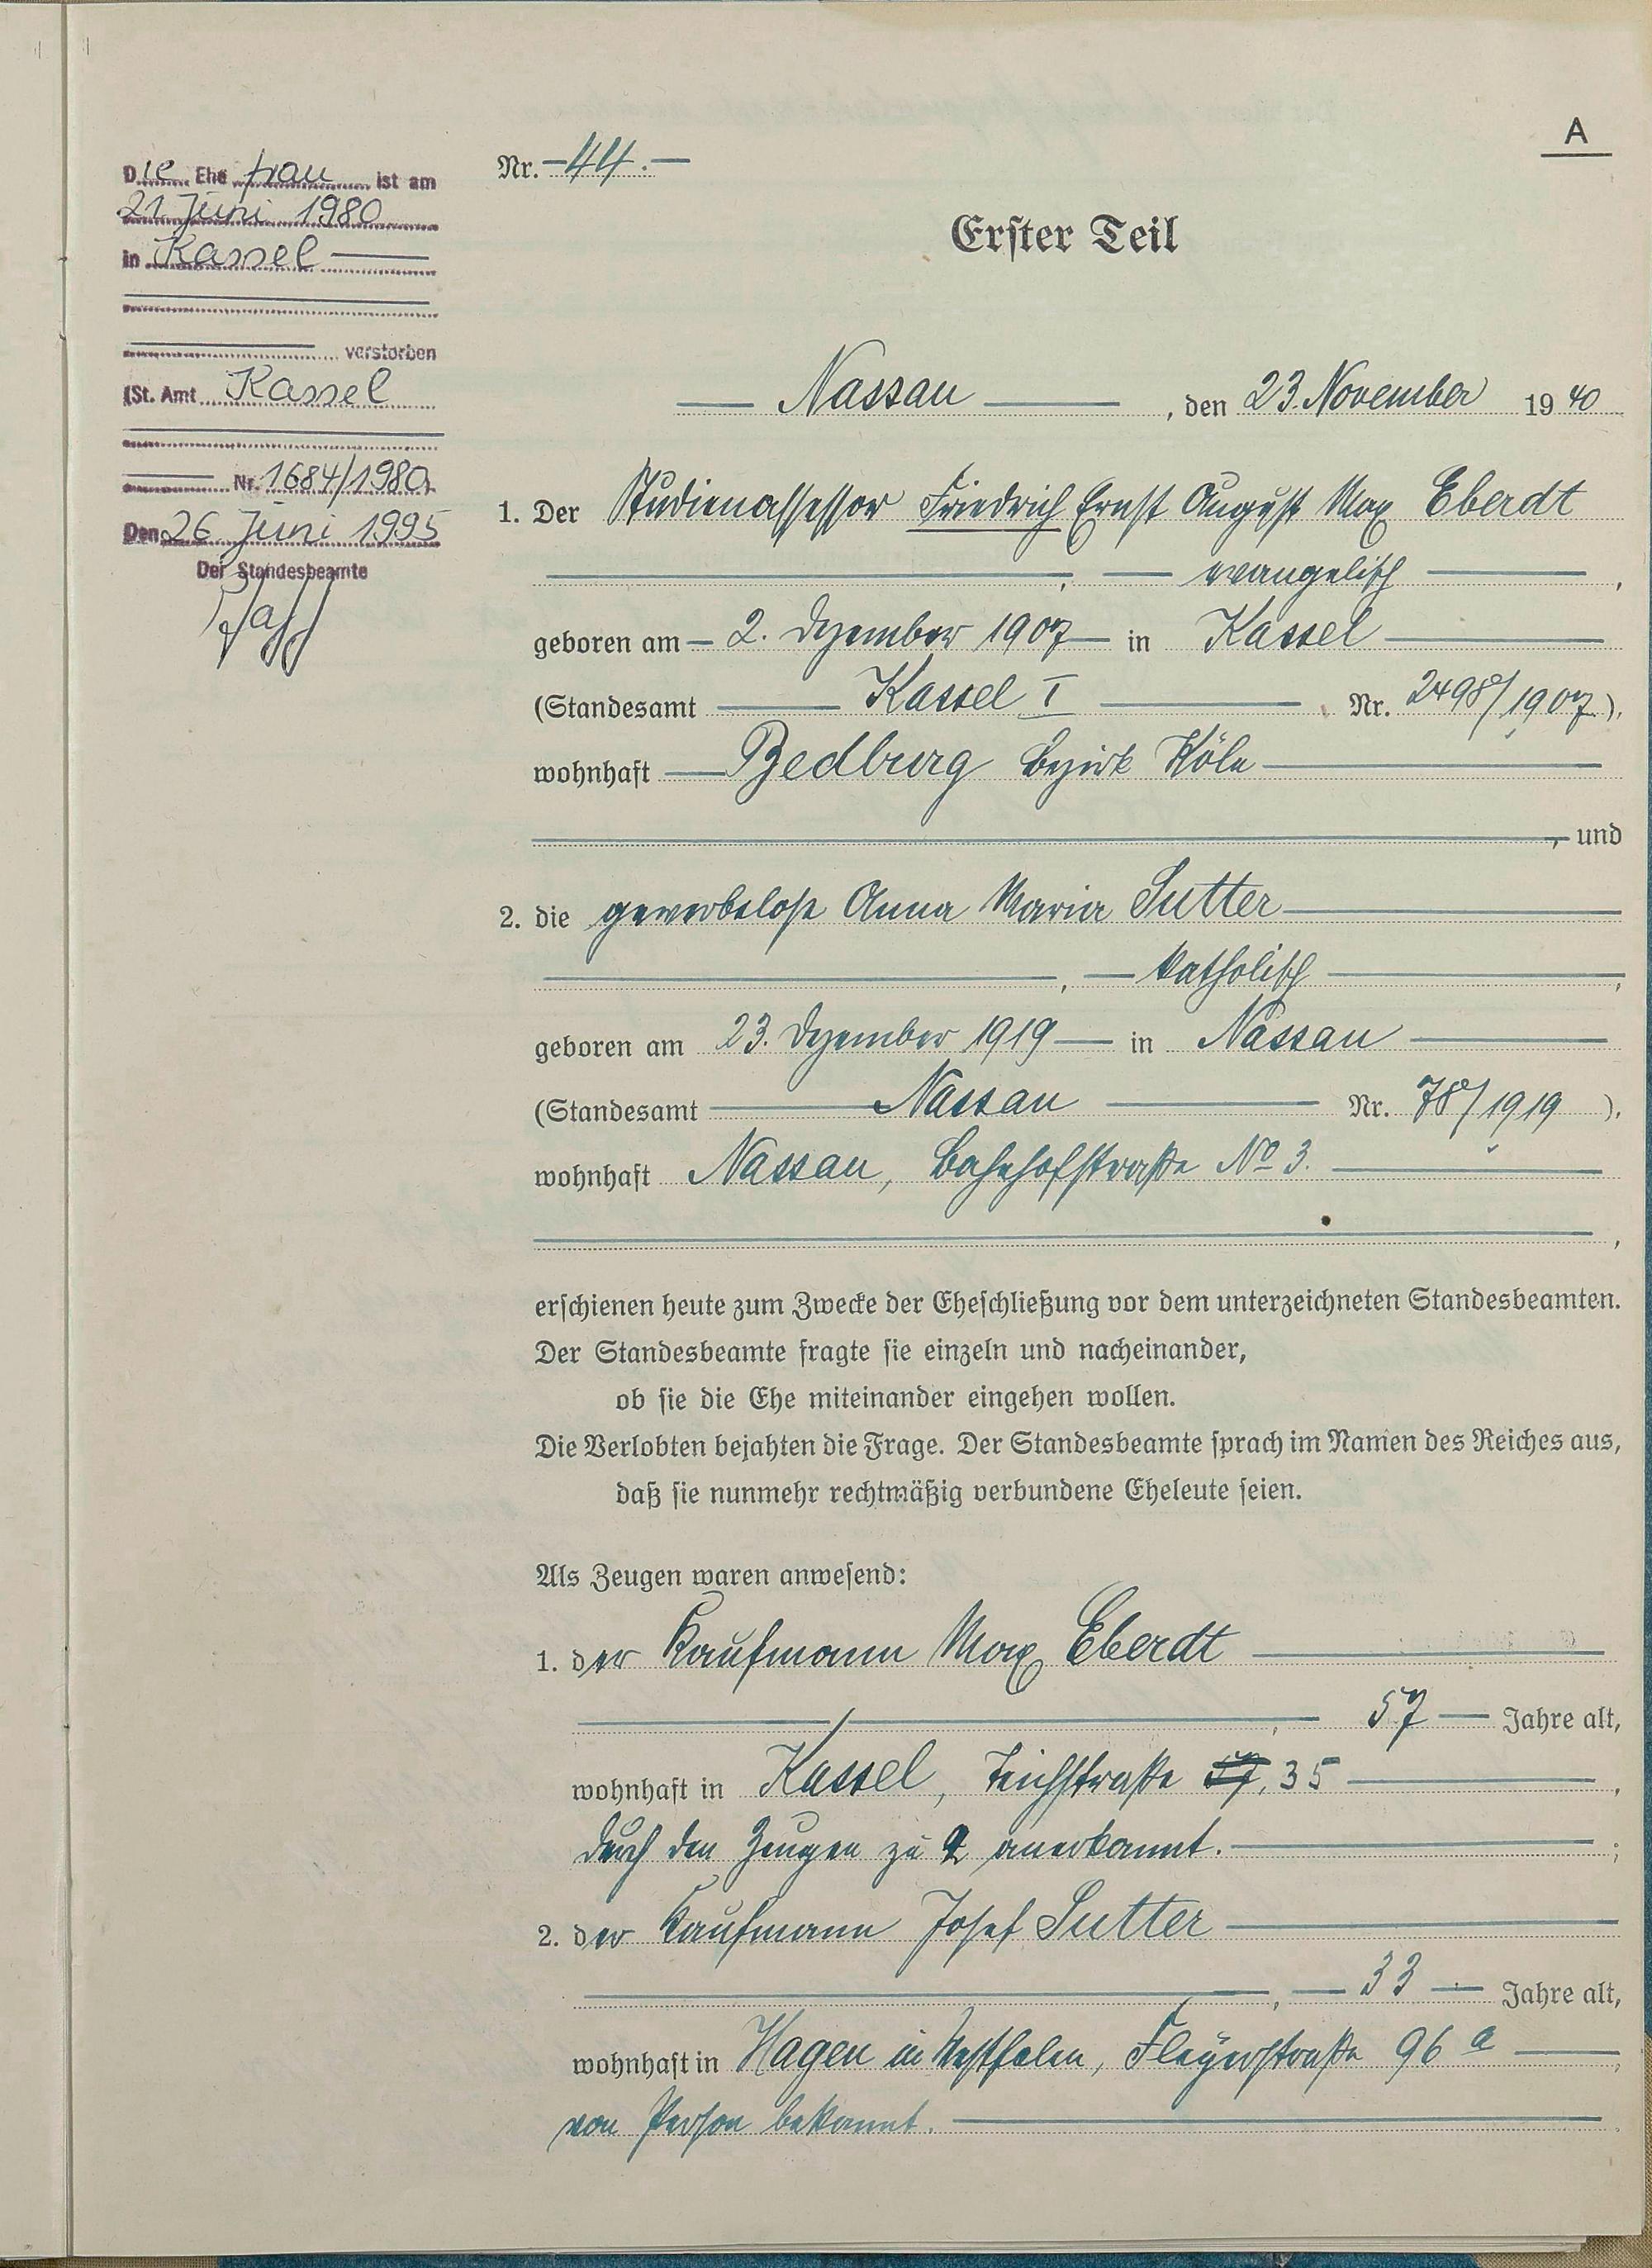 A
Die Ehefrau ist am
21. Juni 1980
in Kassel
verstorben
(St. Amt Kassel
Nr. 1684/1980)
Den 26 Juni 1995
Der Standesbeamte
Nr. 44.
Erster Teil
Nassau, den 23. November 1940
1. Der Studienassessor Friedrich Ernst August Max Eberdt
, evangelisch,
geboren am 2. Dezember 1907 in Kassel
(Standesamt Kassel I Nr. 2498/1907),
wohnhaft Bedburg Bezirk Köln
, und
2. die gewerbelose Anna Maria Sutter
, katholisch,
geboren am 23. Dezember 1919 in Nassau
(Standesamt Nassau Nr. 78/1919),
wohnhaft Nassau, Bahnhofstraße No 3.
,
erschienen heute zum Zwecke der Eheschließung vor dem unterzeichneten Standesbeamten.
Der Standesbeamte fragte sie einzeln und nacheinander,
ob sie die Ehe miteinander eingehen wollen.
Die Verlobten bejahten die Frage. Der Standesbeamte sprach im Namen des Reiches aus,
daß sie nunmehr rechtmäßig verbundene Eheleute seien.
Als Zeugen waren anwesend:
1. der Kaufmann Max Eberdt
, 57 Jahre alt,
wohnhaft in Kassel, Teichstraße 35,
durch den Zeugen zu 2 anerkannt. ;
2. der Kaufmann Josef Sutter
, 33 Jahre alt,
wohnhaft in Hagen in Westfalen, Fleyerstraße 96 a,
von Person bekannt.